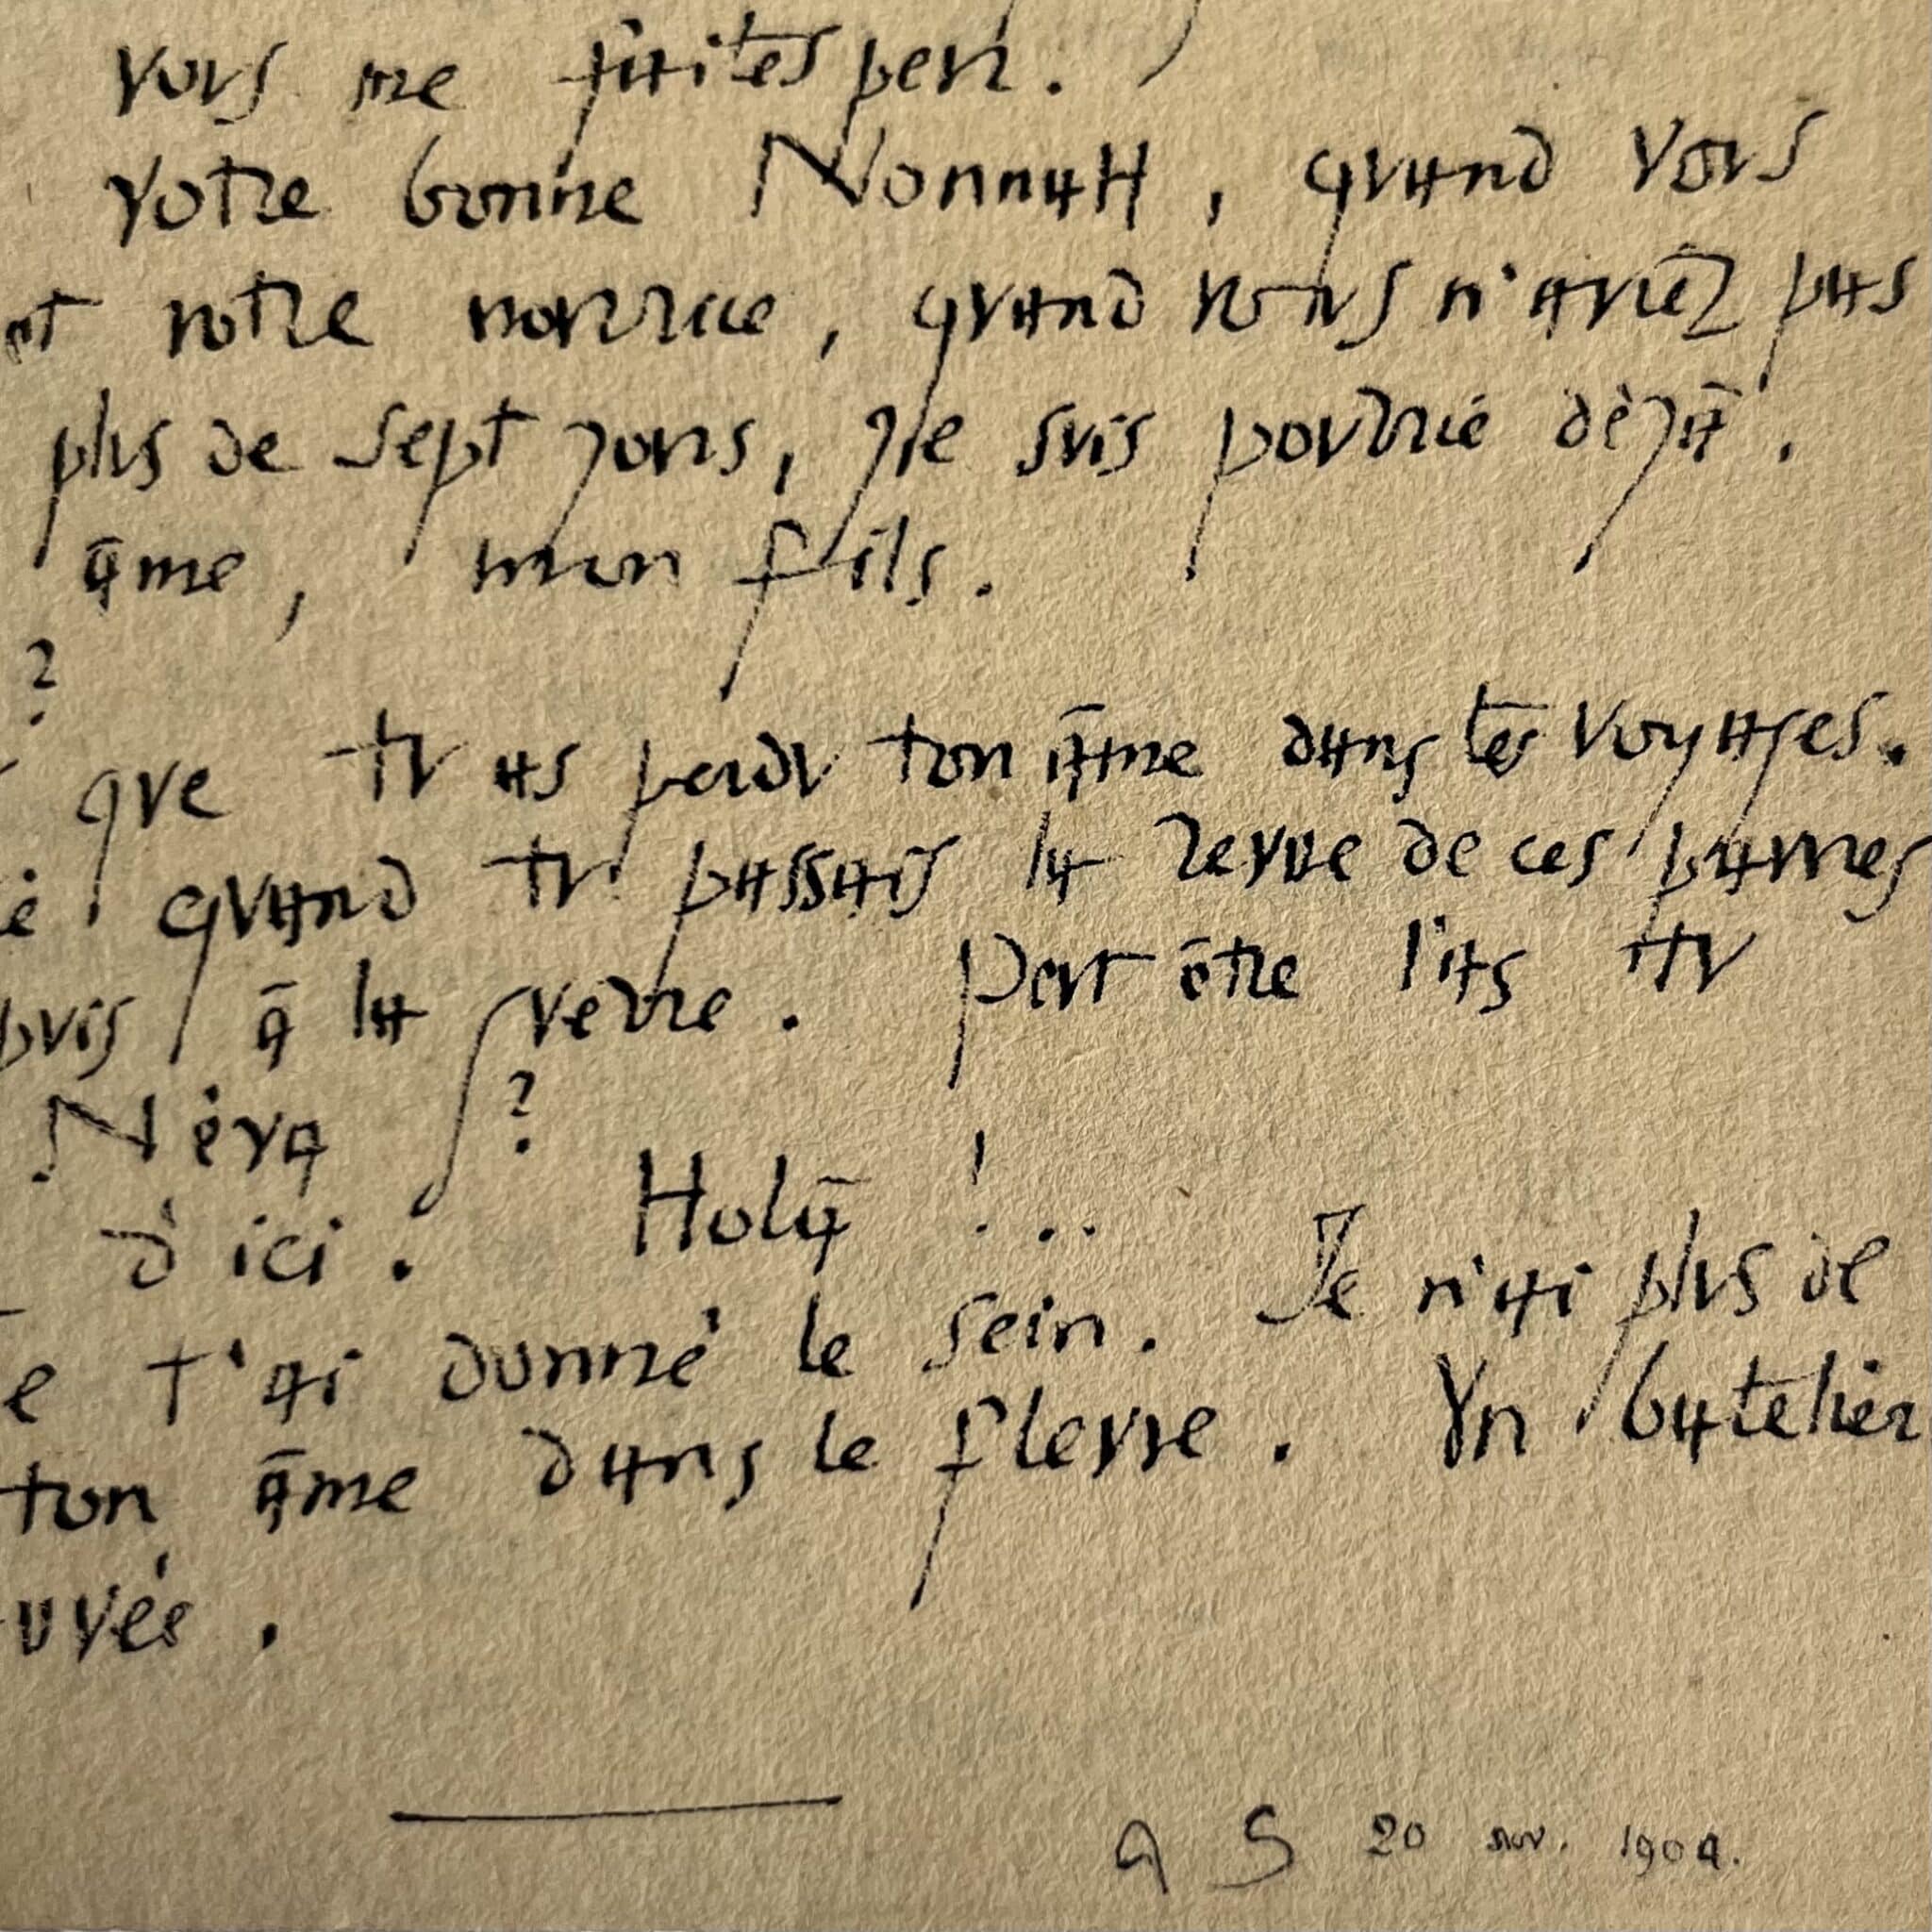 vous me faites peur.
votre bonne Nonnah, quand vous
et votre nourrice, quand vous n'aviez pas
plus de sept jours, Je suis pourrie déjà.
âme, mon fils.
?
que tu as perdu ton âme dans les voyages.
é quand tu passais la revue de ces parures
puis à la guerre. Peut être l'as tu
Néva ?
d'ici. Holà !...
e t'ai donné le sein. Je n'ai plus de
ton âme dans le fleuve. Un batelier
uvée.
A S 20 nov. 1904.